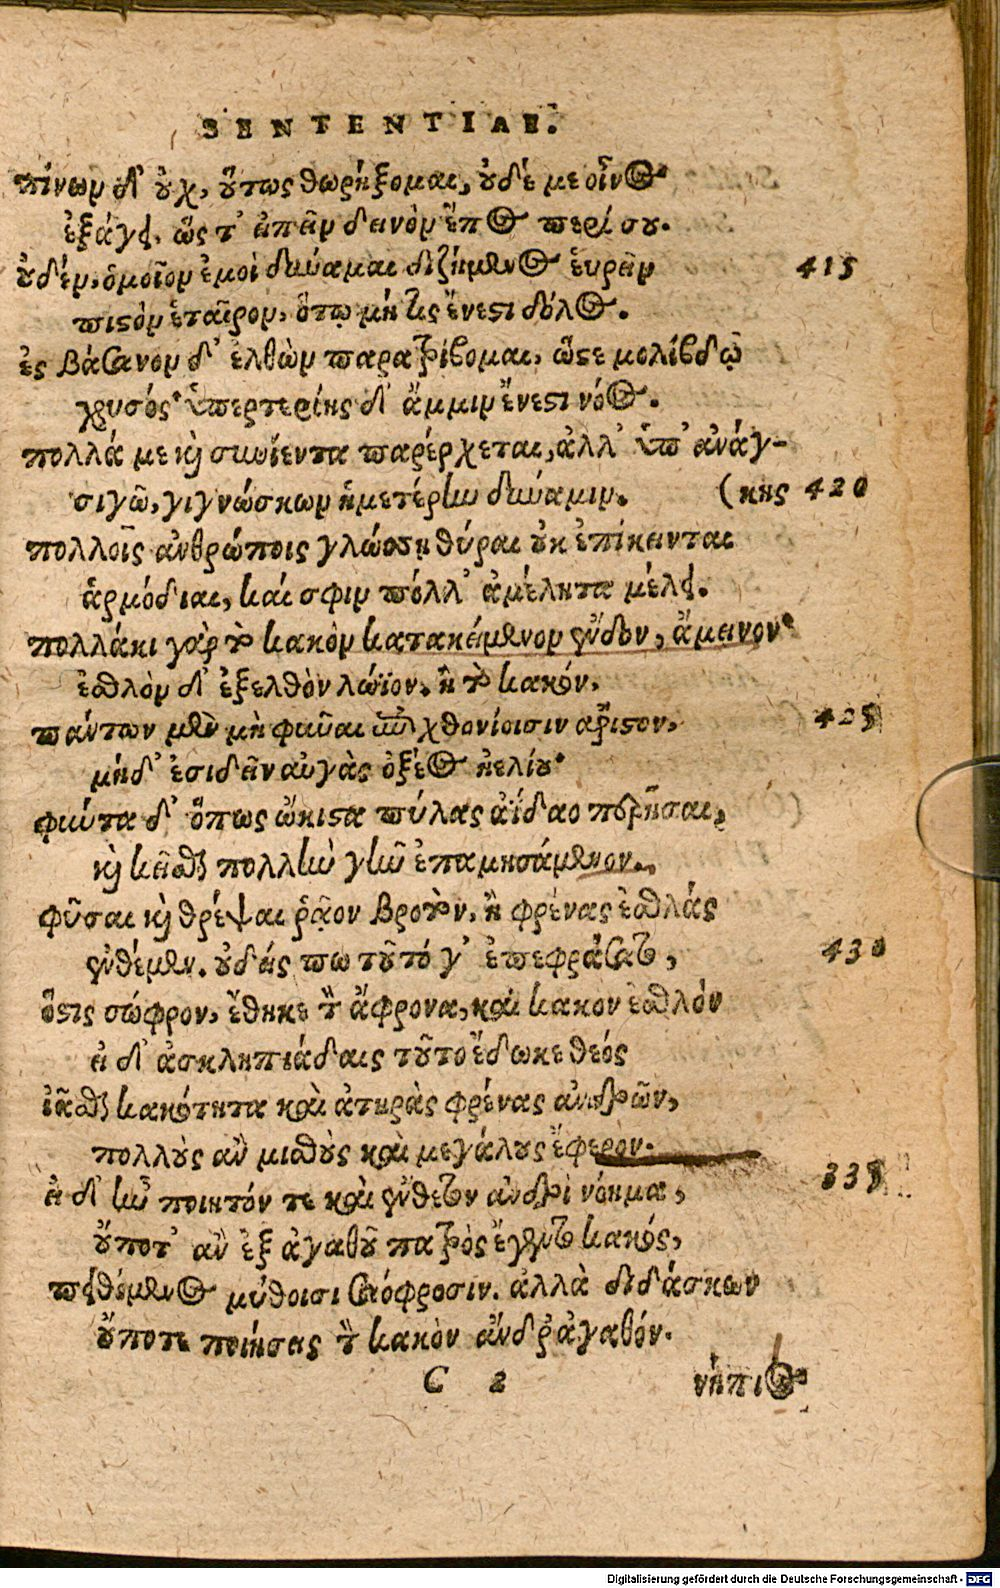 SENTENTIAE.
πίνων δ' οὐχ, οὕτως θωρήξομαι, οὐδέ με οἶνος
ἐξάγει, ὥς τ' εἰπεῖν δεινὸν ἔπος περὶ σου.
οὐδέν, ὁμοῖον ἐμοὶ δύναμαι διζήμενος εὑρεῖν 415
πιστὸν ἑταῖρον, ὅτῳ μή τις ἔνεστι δόλος.
ἐς βάσανον δ' ἐλθὼν παρατρίβομαι, ὥστε μολίβδῳ
χρυσός· ὑπερτερίης δ' ἄμμιν ἔνεστι νόος.
πολλά με καὶ συνίεντα παρέρχεται, ἀλλ' ὑπ' ἀνάγ-
σιγῶ, γιγνώσκων ἡμετέρην δύναμιν. (κης 420
πολλοῖς ἀνθρώποις γλώσσῃ θύραι οὐκ ἐπίκεινται
ἁρμόδιαι, καί σφιν πόλλ' ἀμέλητα μέλει.
πολλάκι γὰρ τὸ κακὸν κατακείμενον ἔνδον, ἄμεινον·
ἐσθλὸν δ' ἐξελθὸν λώϊον, ἢ τὸ κακόν.
πάντων μὲν μὴ φῦναι ἐπιχθονίοισιν ἄριστον, 425
μηδ' ἐσιδεῖν αὐγὰς ὀξέος ἠελίου·
φύντα δ' ὅπως ὤκιστα πύλας ἀΐδαο περῆσαι,
καὶ κεῖσθαι πολλὴν γῆν ἐπαμησάμενον.
φῦσαι καὶ θρέψαι ῥᾷον βροτὸν, ἢ φρένας ἐσθλάς
ἐνθέμεν. οὐδείς πω τοῦτό γ' ἐπεφράσατο, 430
ὅστις σώφρον, ἔθηκε τὸν ἄφρονα, καὶ κακον ἐσθλόν
εἰ δ' ἀσκληπιάδαις τοῦτο ἔδωκε θεός
ἰᾶσθαι κακότητα καὶ ἀτηρὰς φρένας ἀνδρῶν,
πολλοὺς ἂν μισθοὺς καὶ μεγάλους ἔφερον.
εἰ δ' ἦν ποιητόν τε καὶ ἔνθετον ἀνδρὶ νόημα, 335
οὔποτ' ἂν ἐξ ἀγαθοῦ πατρὸς ἔγεντο κακός,
πειθόμενος μύθοισι σαόφροσιν. ἀλλὰ διδάσκων
οὔποτε ποιήσεις τὸν κακὸν ἄνδρ' ἀγαθόν.
C 2 νήπιος
Digitalisierung gefördert durch die Deutsche Forschungsgemeinschaft - DFG